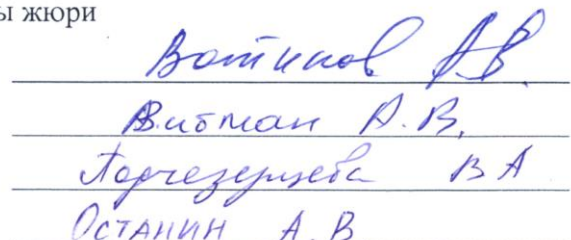 ы жюри
Вотинов А.В.
Витман А.В.
Подчезерцева В А
Останин А.В